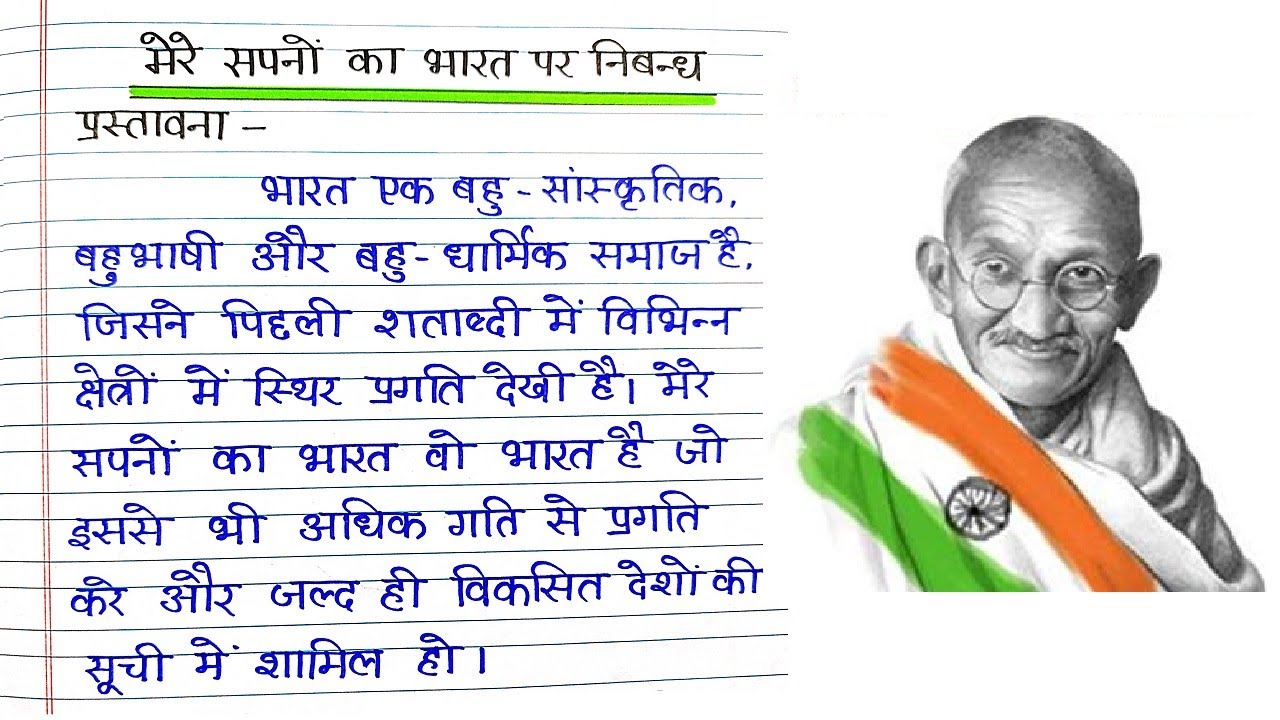 मेरे सपनों का भारत पर निबन्ध
प्रस्तावना –
भारत एक बहु - सांस्कृतिक,
बहुभाषी और बहु - धार्मिक समाज है,
जिसने पिछली शताब्दी में विभिन्न
क्षेत्रों में स्थिर प्रगति देखी है। मेरे
सपनों का भारत वो भारत है जो
इससे भी अधिक गति से प्रगति
करे और जल्द ही विकसित देशों की
सूची में शामिल हो।